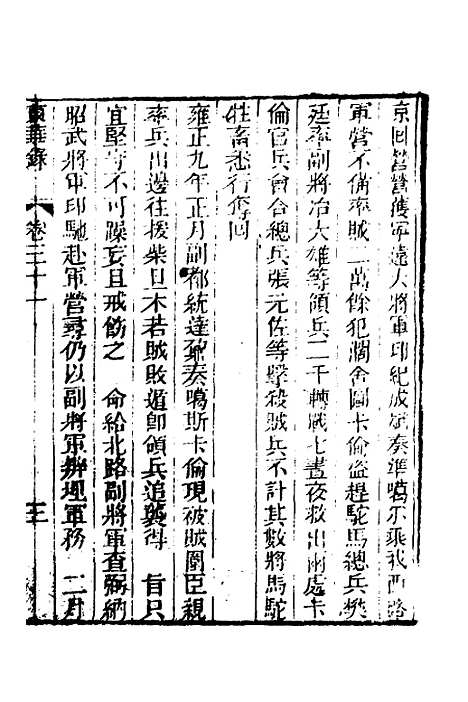 京回營護寧遠大將軍印紀成斌奏準噶爾乘我西路
軍營不備率賊二萬餘犯濶舍圖卡倫盜趕駝馬總兵樊
廷率副將冶大雄等領兵二千轉戰七晝夜救出兩處卡
倫官兵會合總兵張元佐等擊殺賊兵不計其數將馬駝
牲畜悉行奪回
雍正九年正月副都統達鼐奏噶斯卡倫現被賊圍臣親
率兵出邊往援柴旦木若賊敗遁卽領兵追襲得 旨只
宜堅守不可躁妄且戒飭之 命給北路副將軍查弼納
昭武將軍印馳赴軍營尋仍以副將軍辦理軍務 二月
東華錄 卷三十一 三